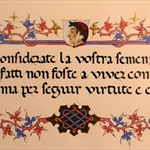 onsiderate la vostra semen
fatti non foste a viver com
ma per seguir virtute e c